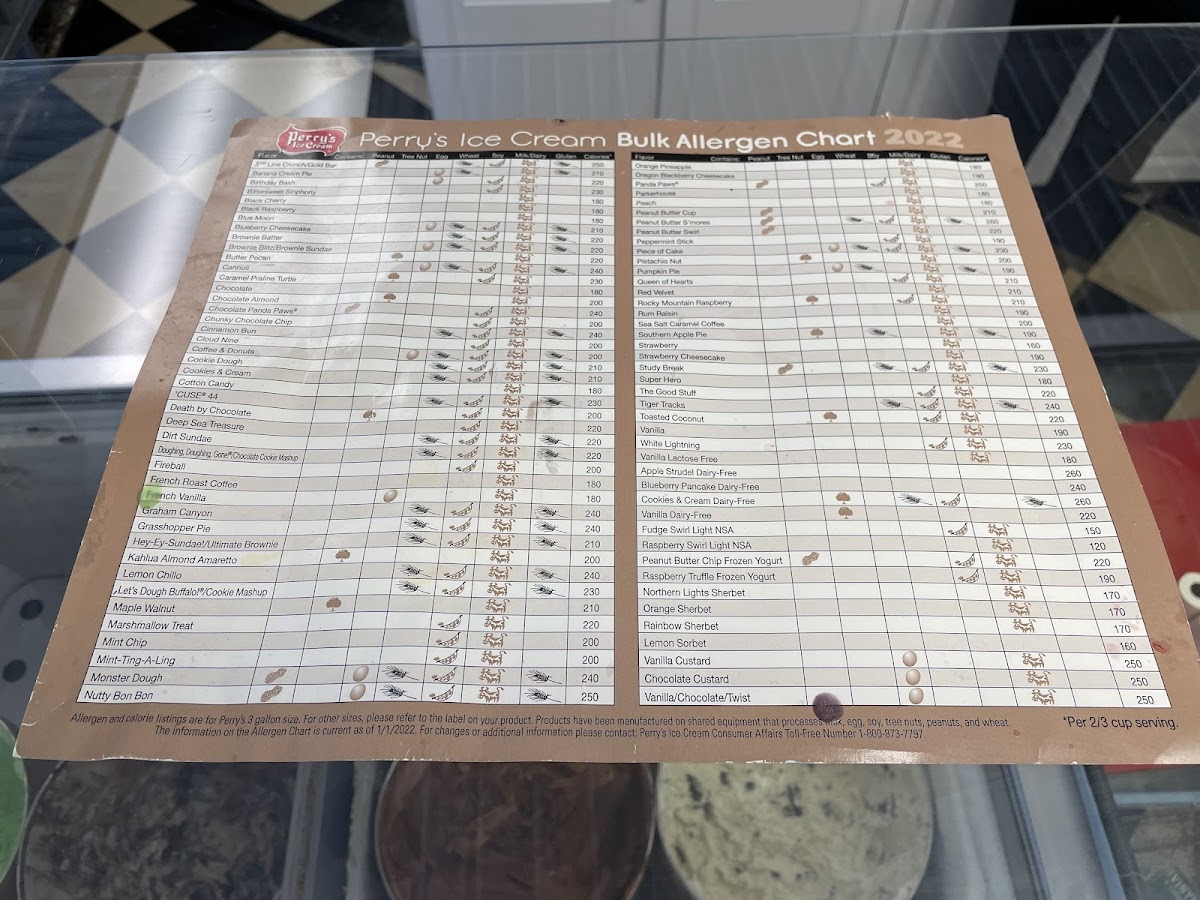 Perry's Ice Cream
Perry's Ice Cream Bulk Allergen Chart 2022
Flavor Contains: Peanut Tree Nut Egg Wheat Soy Milk/Dairy Gluten Calories*
5th Line Crunch/Gold Bar 250
Banana Cream Pie 210
Birthday Bash 220
Bittersweet Sinphony 230
Black Cherry 180
Black Raspberry 180
Blue Moon 180
Blueberry Cheesecake 210
Brownie Batter 220
Brownie Blitz/Brownie Sundae 220
Butter Pecan 220
Cannoli 240
Caramel Praline Turtle 230
Chocolate 180
Chocolate Almond 200
Chocolate Panda Paws® 240
Chunky Chocolate Chip 200
Cinnamon Bun 240
Cloud Nine 200
Coffee & Donuts 200
Cookie Dough 210
Cookies & Cream 210
Cotton Candy 180
'CUSE® 44 230
Death by Chocolate 200
Deep Sea Treasure 220
Dirt Sundae 220
Doughing, Doughing, Gone!®/Chocolate Cookie Mashup 220
Fireball 200
French Roast Coffee 180
French Vanilla 180
Graham Canyon 240
Grasshopper Pie 240
Hey-Ey-Sundae!/Ultimate Brownie 210
Kahlua Almond Amaretto 200
Lemon Chillo 240
Let's Dough Buffalo!®/Cookie Mashup 230
Maple Walnut 210
Marshmallow Treat 220
Mint Chip 200
Mint-Ting-A-Ling 200
Monster Dough 240
Nutty Bon Bon 250
Flavor Contains: Peanut Tree Nut Egg Wheat Soy Milk/Dairy Gluten Calories*
Orange Pineapple 180
Oregon Blackberry Cheesecake 190
Panda Paws® 250
Parkerhouse 180
Peach 180
Peanut Butter Cup 210
Peanut Butter S'mores 260
Peanut Butter Swirl 220
Peppermint Stick 190
Piece of Cake 230
Pistachio Nut 200
Pumpkin Pie 190
Queen of Hearts 210
Red Velvet 210
Rocky Mountain Raspberry 210
Rum Raisin 190
Sea Salt Caramel Coffee 200
Southern Apple Pie 190
Strawberry 160
Strawberry Cheesecake 190
Study Break 230
Super Hero 180
The Good Stuff 220
Tiger Tracks 240
Toasted Coconut 220
Vanilla 190
White Lightning 230
Vanilla Lactose Free 180
Apple Strudel Dairy-Free 260
Blueberry Pancake Dairy-Free 240
Cookies & Cream Dairy-Free 260
Vanilla Dairy-Free 220
Fudge Swirl Light NSA 150
Raspberry Swirl Light NSA 120
Peanut Butter Chip Frozen Yogurt 220
Raspberry Truffle Frozen Yogurt 190
Northern Lights Sherbet 170
Orange Sherbet 170
Rainbow Sherbet 170
Lemon Sorbet 160
Vanilla Custard 250
Chocolate Custard 250
Vanilla/Chocolate/Twist 250
Allergen and calorie listings are for Perry's 3 gallon size. For other sizes, please refer to the label on your product. Products have been manufactured on shared equipment that processes milk, egg, soy, tree nuts, peanuts, and wheat.
*Per 2/3 cup serving.
The information on the Allergen Chart is current as of 1/1/2022. For changes or additional information please contact: Perry's Ice Cream Consumer Affairs Toll-Free Number 1-800-873-7797.